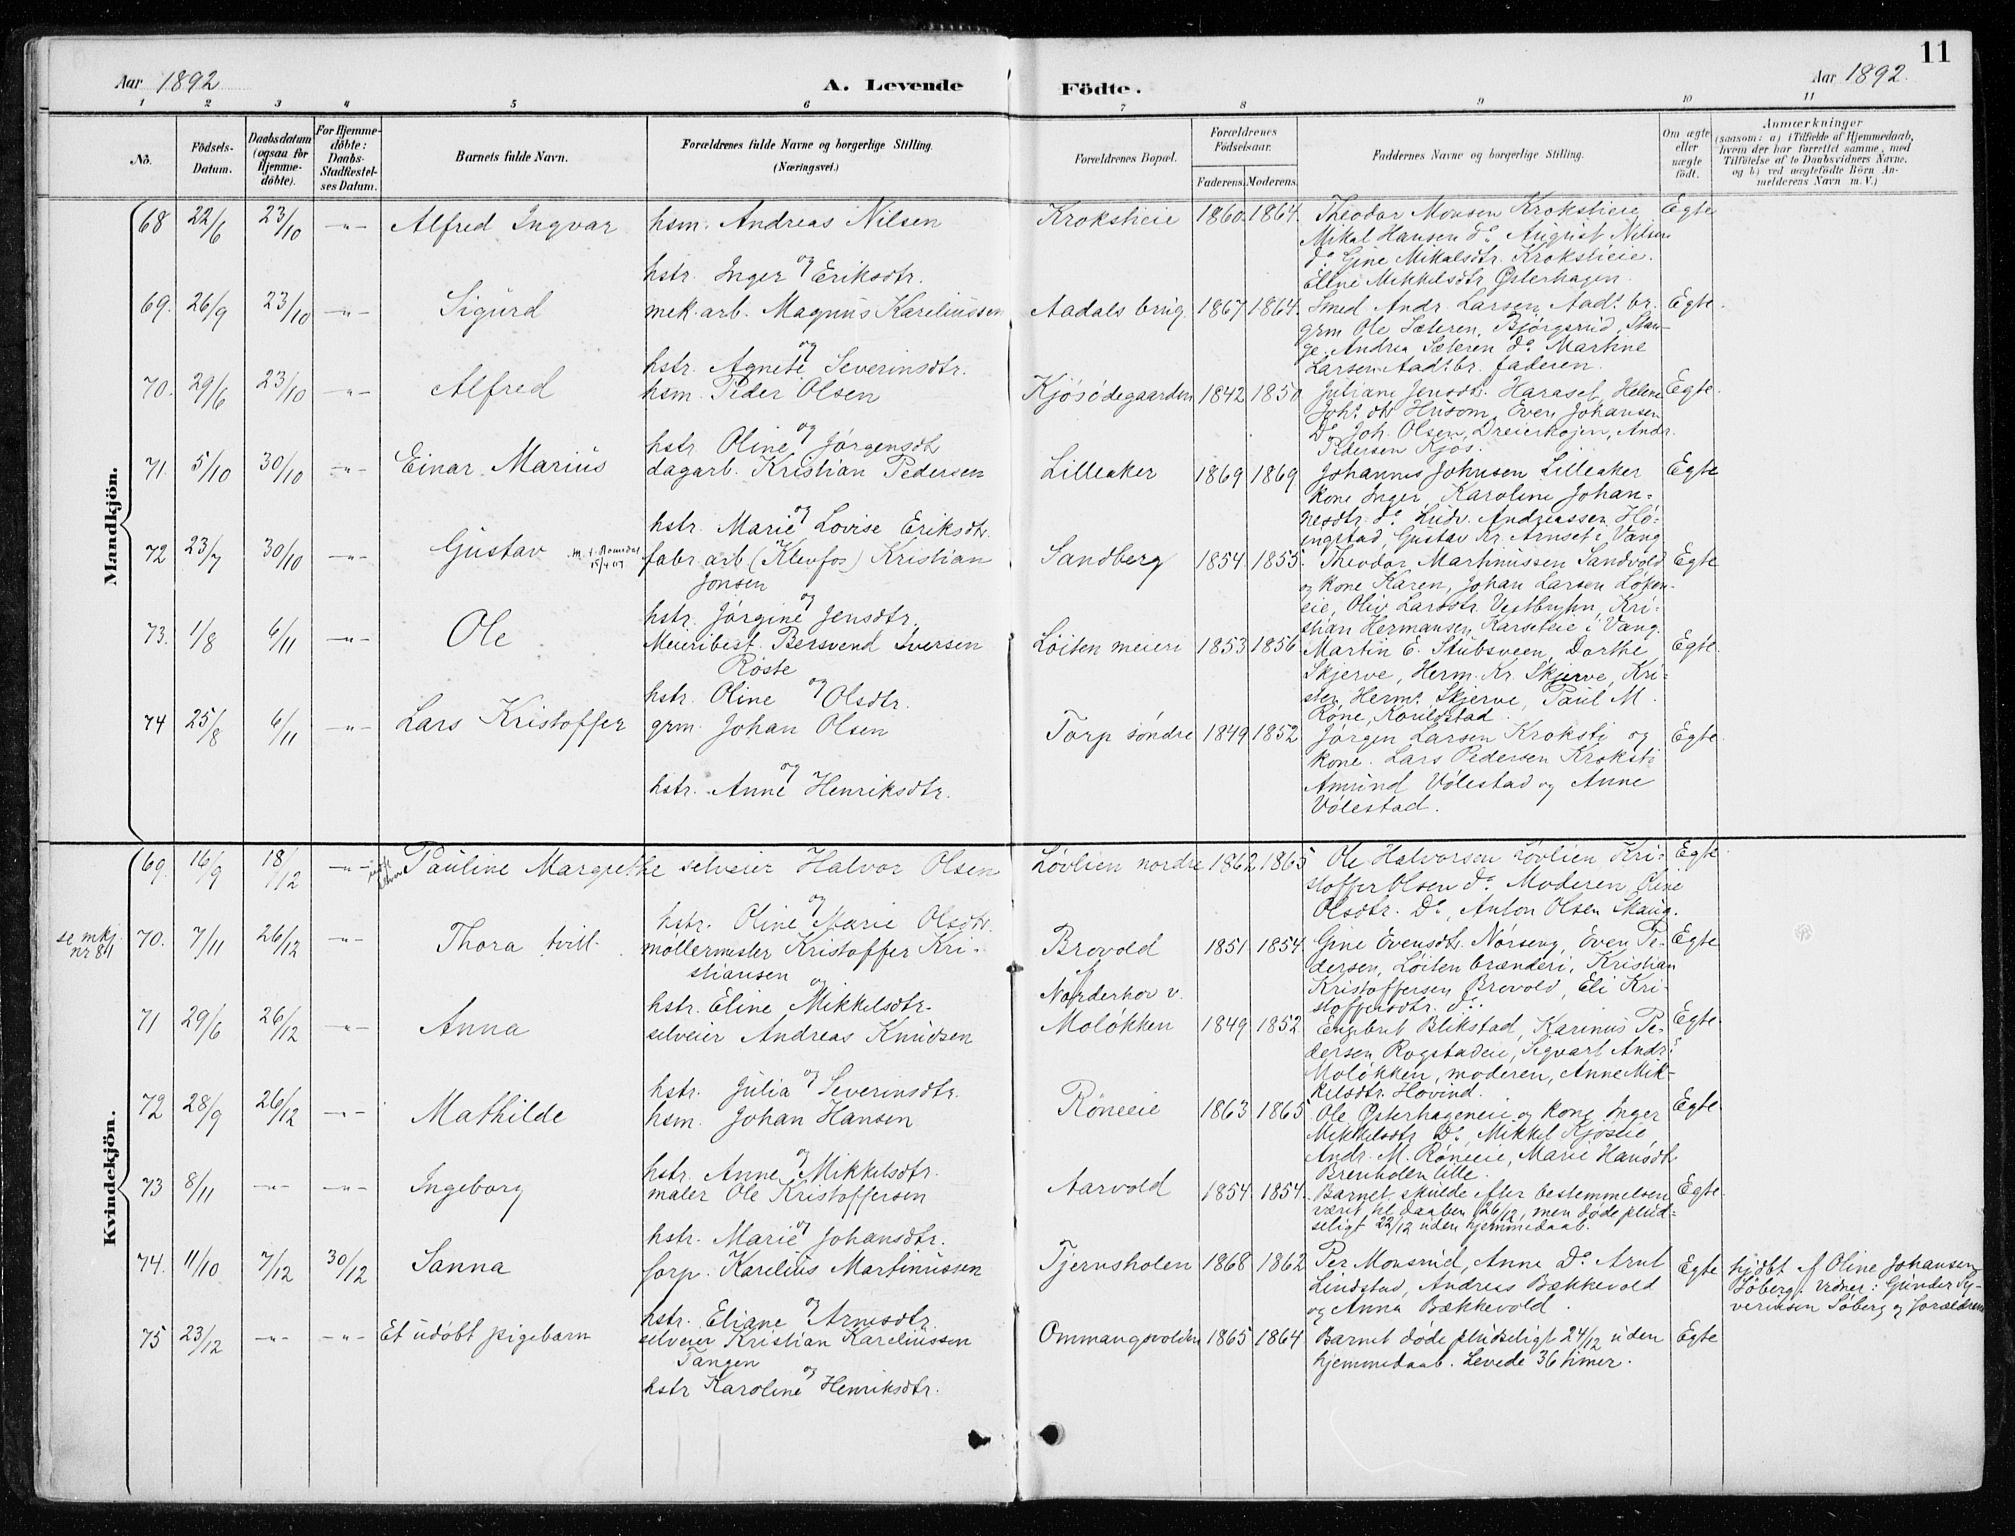 11
Aar 1892
A. Levende
Födte.
Aar 1892.
1 2 3 4 5 6 7 8 9 10 11
No.
Födsels-
Datum.
Daabsdatum
(ogsaa for
Hjemme-
döbte).
For Hjemme-
döbte:
Daabs-
Stadfestel-
ses Datum.
Barnets fulde Navn.
Forældrenes fulde Navne og borgerlige Stilling.
(Næringsvei.)
Forældrenes Bopæl.
Forældrenes
Födselsaar.
Faderens. Moderens.
Faddernes Navne og borgerlige Stilling.
Om ægte
eller
uægte
födt.
Anmærkninger
(saasom: a) i Tilfælde af Hjemmedaab,
hvem der har forrettet samme, med
Tilföielse af to Daabsvidners Navne.
og b) ved uægtefödte Börn An-
melderens Navn m. V.)
Mandkjön.
68 22/6 23/10 -"- Alfred Ingvar hsm. Andreas Nilsen Kroksheie 1860 1864. Theodor Monsen Kroksheie Egte
Mikal Hansen do August Nilsen
do Gine Mikalsdtr. Kroksheie.
og
hstr. Inger Eriksdtr.
Elene Mikkelsdtr Østerhagen.
69. 26/9 23/10 -"- Sigurd mek. arb. Magnus Kareliussen Aadals brug 1867 1864. Smed Andr. Larsen Aadt br. Egte.
grm Ole Sæteren, Bjørgsrud, Stan-
ge. Andrea Sæteren do Martine
og
hstr. Agnete Severinsdtr.
Larsen Aadt br. faderen.
70. 29/6 23/10 -"- Alfred hsm. Peder Olsen Kjösödegaarden 1842 1850 Juliane Jensdtr. Haraset, Helene Egte.
Joh. dtr Husom, Even Johansen
Do Joh. Olsen, Dreierhojen, Andr.
og
hstr. Oline Jørgensdtr
Pedersen Kjøs.
71. 5/10 30/10 -"- Einar Marius dagarb. Kristian Pedersen Lilleaker 1869 1869 Johannes Johnsen Lilleaker Egte
Kone Inger, Karoline Johan-
nesdtr. do Ludv. Andreassen Hø-
og
hstr. Marie Lovise Eriksdtr.
ingstad Gustav Kr. Arnset i Vang
72 23/7 30/10 -"- Gustav fabr. arb (Klevfos) Kristian Sandberg 1854 1855. Theodor Martinussen Sandvold Egte
Jonsen
og Kone Karen, Johan Larsen Løken-
eie, Oliv Larsdtr Vestbyhn, Kri-
og
hstr. Jørgine Jensdtr.
stian Hermansen Karseteie i Vang.
73. 1/8 6/11 -"- Ole Meieribest. Bersvend Iversen Løiten meieri 1853 1856 Martin E. Stubsveen, Dorthe Egte.
Røste
Skjerve, Herm. Kr. Skjerve, Kri-
sten Herms. Skjerve, Paul M.
og
hstr. Oline Olsdtr.
Røne,
74 25/8 6/11 -"- Lars Kristoffer grm. Johan Olsen Torp søndre 1849 1852 Jørgen Larsen Kroksti og Egte.
kone. Lars Pedersen Kroksti
og
hstr. Anne Henriksdtr.
Amund Vølestad og Anne
Vølestad.
Kvindekjön.
69. 16/9 18/12 -"- Pauline Margrethe selveier Halvor Olsen Løvlien nordre 1862 1865 Ole Halvorsen Løvlien Kri- Egte.
stoffer Olsen do. Moderen, Oline
og
hstr. Oline Marie Olsdtr.
Olsdtr. Do, Anton Olsen Skaug.
se mkj.
nr 84
70. 7/11 26/12 -"- Thora tvill. møllermester Kristoffer Kri- Brovold 1851 1854 Gine Evensdtr. Nørseng, Even Pe- Egte
stiansen
dersen, Løiten brænderi, Kristian
og
Norderhov v.
Kristoffersen Brovold, Eli Kri-
hstr. Eline Mikkelsdtr.
stoffersdtr. do.
71 29/6 26/12 -"- Anna selveier Andreas Knudsen Moløkken 1849 1852 Engebret Blikstad, Karinus Pe- Egte.
dersen Rogstadeie, Sigvart Andr.
Moløkken, moderen, Anne Mik-
og
hstr. Julia Severinsdtr.
kelsdtr. Hovind.
72 28/9 26/12 -"- Mathilde hsm. Johan Hansen Røneeie 1863 1865 Ole Østerhageneie og kone Inger Egte.
Mikkelsdtr Do, Mikkel Kjøseie,
Andr. M. Røneeie, Marie Hansdtr
og
hstr. Anne Mikkelsdtr.
Brenholen lille.
73 8/11 -"- -"- Ingeborg maler Ole Kristoffersen Aarvold 1854 1854. Barnet skulde efter bestemmelsen Egte.
været til daaben 26/12, men døde plud-
seligt 22/12 uden hjemmedaab.
og
hstr. Marie Johansdtr.
74. 11/10 7/12 30/12 Sanna forp. Karelius Martinussen Tjernsholen 1868 1862 Per Monsrud, Anne Do. Arnt Egte hjdbt af Oline Johansen
Lindstad, Andreas Bækkevold
Søberg. Vidner: Gunder Sy-
og Anna Bækkevold.
verinsen Søberg og forældrene
og
hstr. Eliane Arnesdtr.
75 23/12 -"- -"- Et udøbt pigebarn selveier Kristian Kareliussen Ommangsvolden 1865 1864 Barnet døde pludseligt 24/12 uden Egte
Tangen
hjemmedaab. Levede 36 timer.
og
hstr Karoline Henriksdtr.